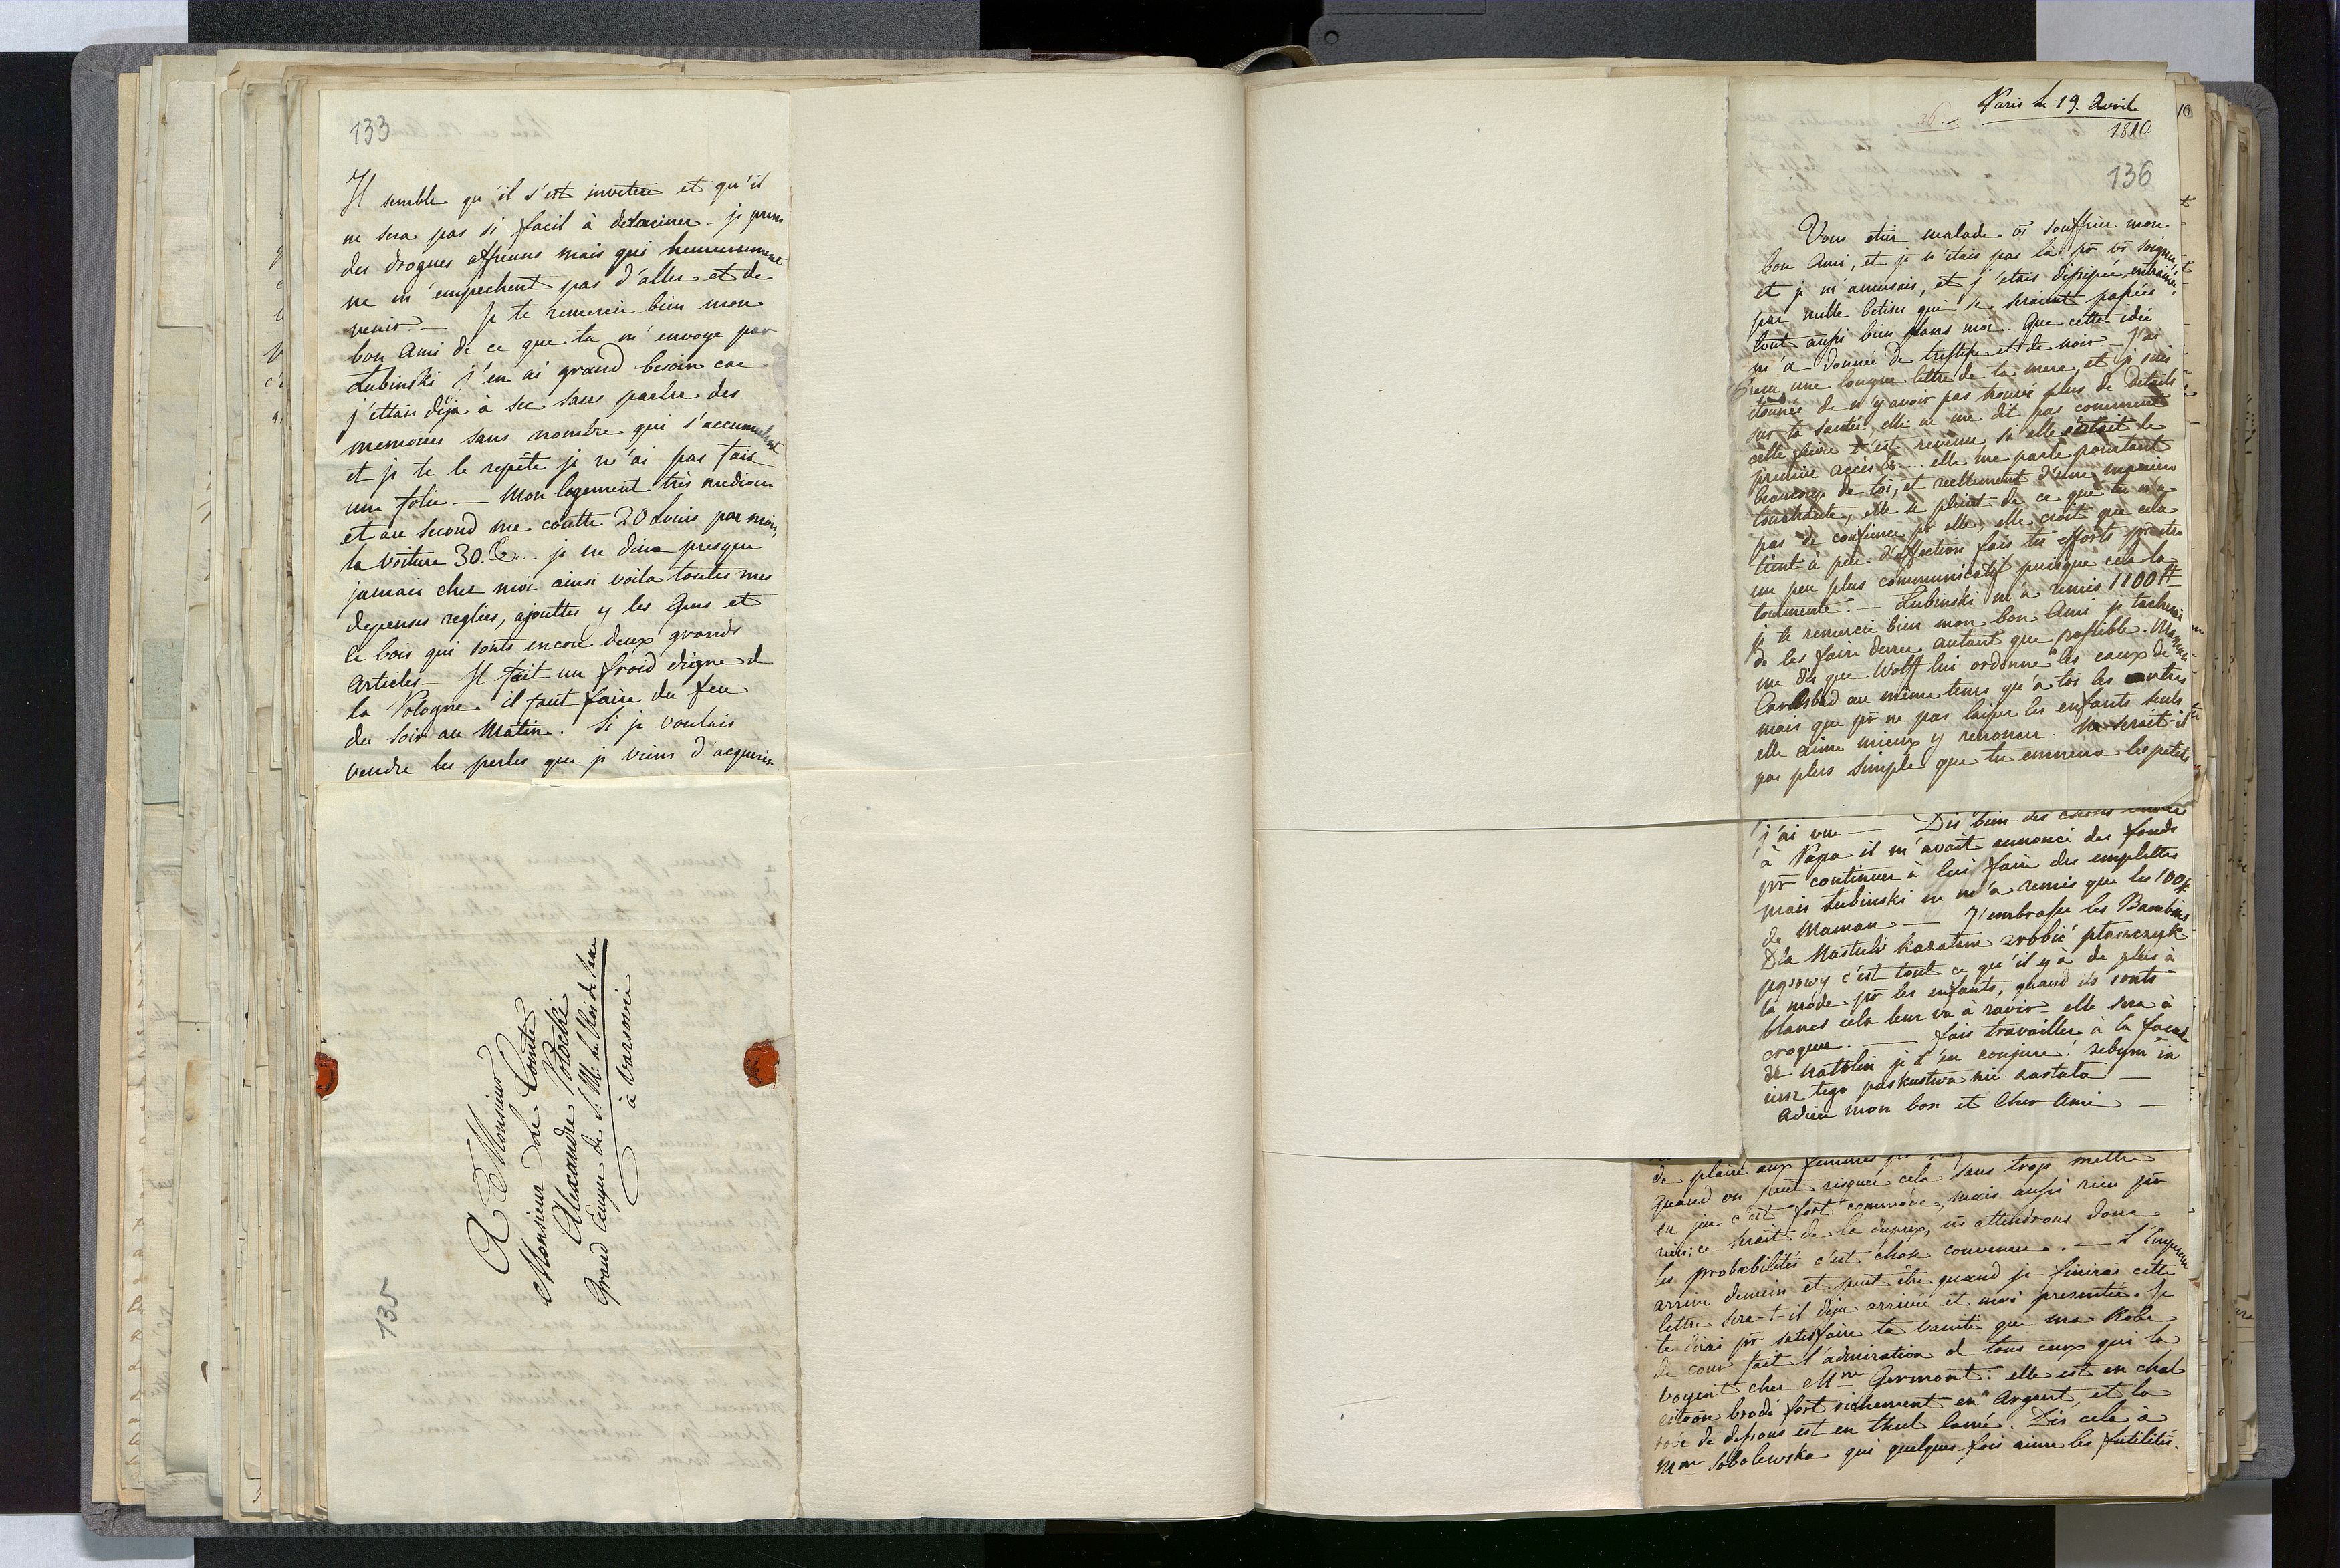 133
Il semble qu'il s'est invetere et qu'il
ne sera pas si facil à deraciner - je prens
des drogues affreuses mais qui heureusement
ne m'empechent pas d'aller et de
venir. — Je te remercie bien mon
bon Ami de ce que tu m'envoye par
Lubinski j'en ai grand besoin car
j'ettais déja à sec sans parler des
memoires sans nombre qui s'accumulent
et je te le repête je n'ai pas fait
une folie — Mon logement très mediocre
et au second me coutte 20 Louis par mois,
la voiture 30. je ne dine presque
jamais chez moi ainsi voila toutes mes
depenses reglées, ajouttes y les Gens et
le bois qui sonts encore deux grands
Articles — Il fait un froid digne de
la Pologne il faut faire du feu
du soir au Matin. Si je voulais
vendre les perles que je viens d'acquerir
A Monsieur
Monsieur le Comte
Alexandre Potocki
Grand Ecuyer de S: M: le Roi de Saxe
à Varsovie
135
Paris le 19. Avril
1810
10
26.
136
Vous etiez malade vs souffriez mon
bon Ami, et je n'etais pas là pr vs soigner,
et je m'amusais, et j'etais dissipée, entrainée
par mille betises qui se seraient passées
tout aussi bien sans moi. Que cette idée
m'a donnée de tristesse et de noir — J'ai
reçu une longue lettre de ta mere, et je suis
étonnée de n'y avoir pas trouvé plus de details
sur ta santée, elle ne me dit pas comment
cette fievre t'est revenue si elle etait le
premier accès &... elle me parle pourtant
beaucoup de toi, et reellement d'une maniere
touchante, elle se plaint de ce que tu n'a
pas de confience pr elle, elle croit que cela
tient à peu d'affection fais tes efforts pr etre
un peu plus communicatif puisque cela la
tourmente. — Lubinski m'a remis 1100 #
je te remercie bien mon bon Ami je tacherai
de les faire durer autant que possible. Maman
me dis que Wolff lui ordonne les eaux de
Carlsbad au même tems qu'à toi les autres
mais que pr ne pas laisser les enfants seuls
elle aime mieux y renoncer. Ne serait-il
pas plus simple que tu emmena les petits
j'ai vue — Dis bien des choses
à Papa il m'avait annoncé des fonds
pr continuer à lui faire des emplettes
mais Lubinski ne m'a remis que les 100 #
de Maman — J'embrasse les Bambins
Dla Nastusi kazałam zrobić płaszczyk
pąsowy c'est tout ce qu'il y à de plus à
la mode pr les enfants, quand ils sonts
blancs cela leur va à ravir elle sera à
croquer. — fais travailler à la facade
de Natolin je t'en conjure! żebym ia
iusz tego paskustwa nie zastała —
Adieu mon bon et Cher Ami —
de plaire aux femmes
quand on peut risquer cela sans trop mettre
en jeu c'est fort commode, mais aussi rien pr
rien: ce serait de la duprix, ns attendrons donc
les probabilités c'est chose convenue. — L'Empereur
arrive demain et peut être quand je finirai cette
lettre sera-t-il déja arrivée et moi presentée. Je
te dirai pr satisfaire ta vanité que ma Robe
de cour fait l'admiration de tous ceux qui la
voyent chez Mme Germont: elle est en chal
citron brodé fort richement en Argent, et la
robe de dessous est en thul lamé. Dis cela à
Mme Sobolewska qui quelques fois aime les futilités.